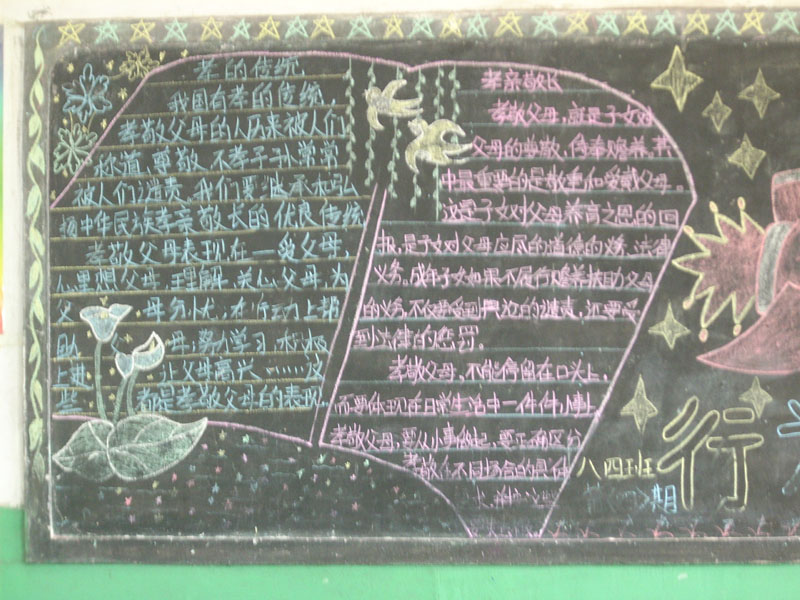 孝的传统
我国有孝的传统，
孝敬父母的人历来被人们
称道，尊敬，不孝子孙常常
被人们谴责。我们要继承永弘
扬中华民族孝亲敬长的优良传统
孝敬父母表现在一爱父母，
心里想父母，理解、关心父母，为
父母分忧，在行动上帮
助父母；勤劳学习，积极
上进，让父母高兴……这
些都是孝敬父母的表现…
孝亲敬长
孝敬父母，就是子女对
父母的尊敬，侍奉赡养。其
中最重要的是敬重和爱戴父母。
这是子女对父母养育之恩的回
报，是子女对父母应尽的道德的义务、法律
义务。成年子女如果不履行赡养扶助父母
的义务，不仅要受到舆论的谴责，还要受
到法律的惩罚。
孝敬父母，不能停留在口头上，
而要体现在日常生活中一件件小事上
孝敬父母，要从小事做起，要正确区分
孝敬在不同场合的具体
八四班
期
行